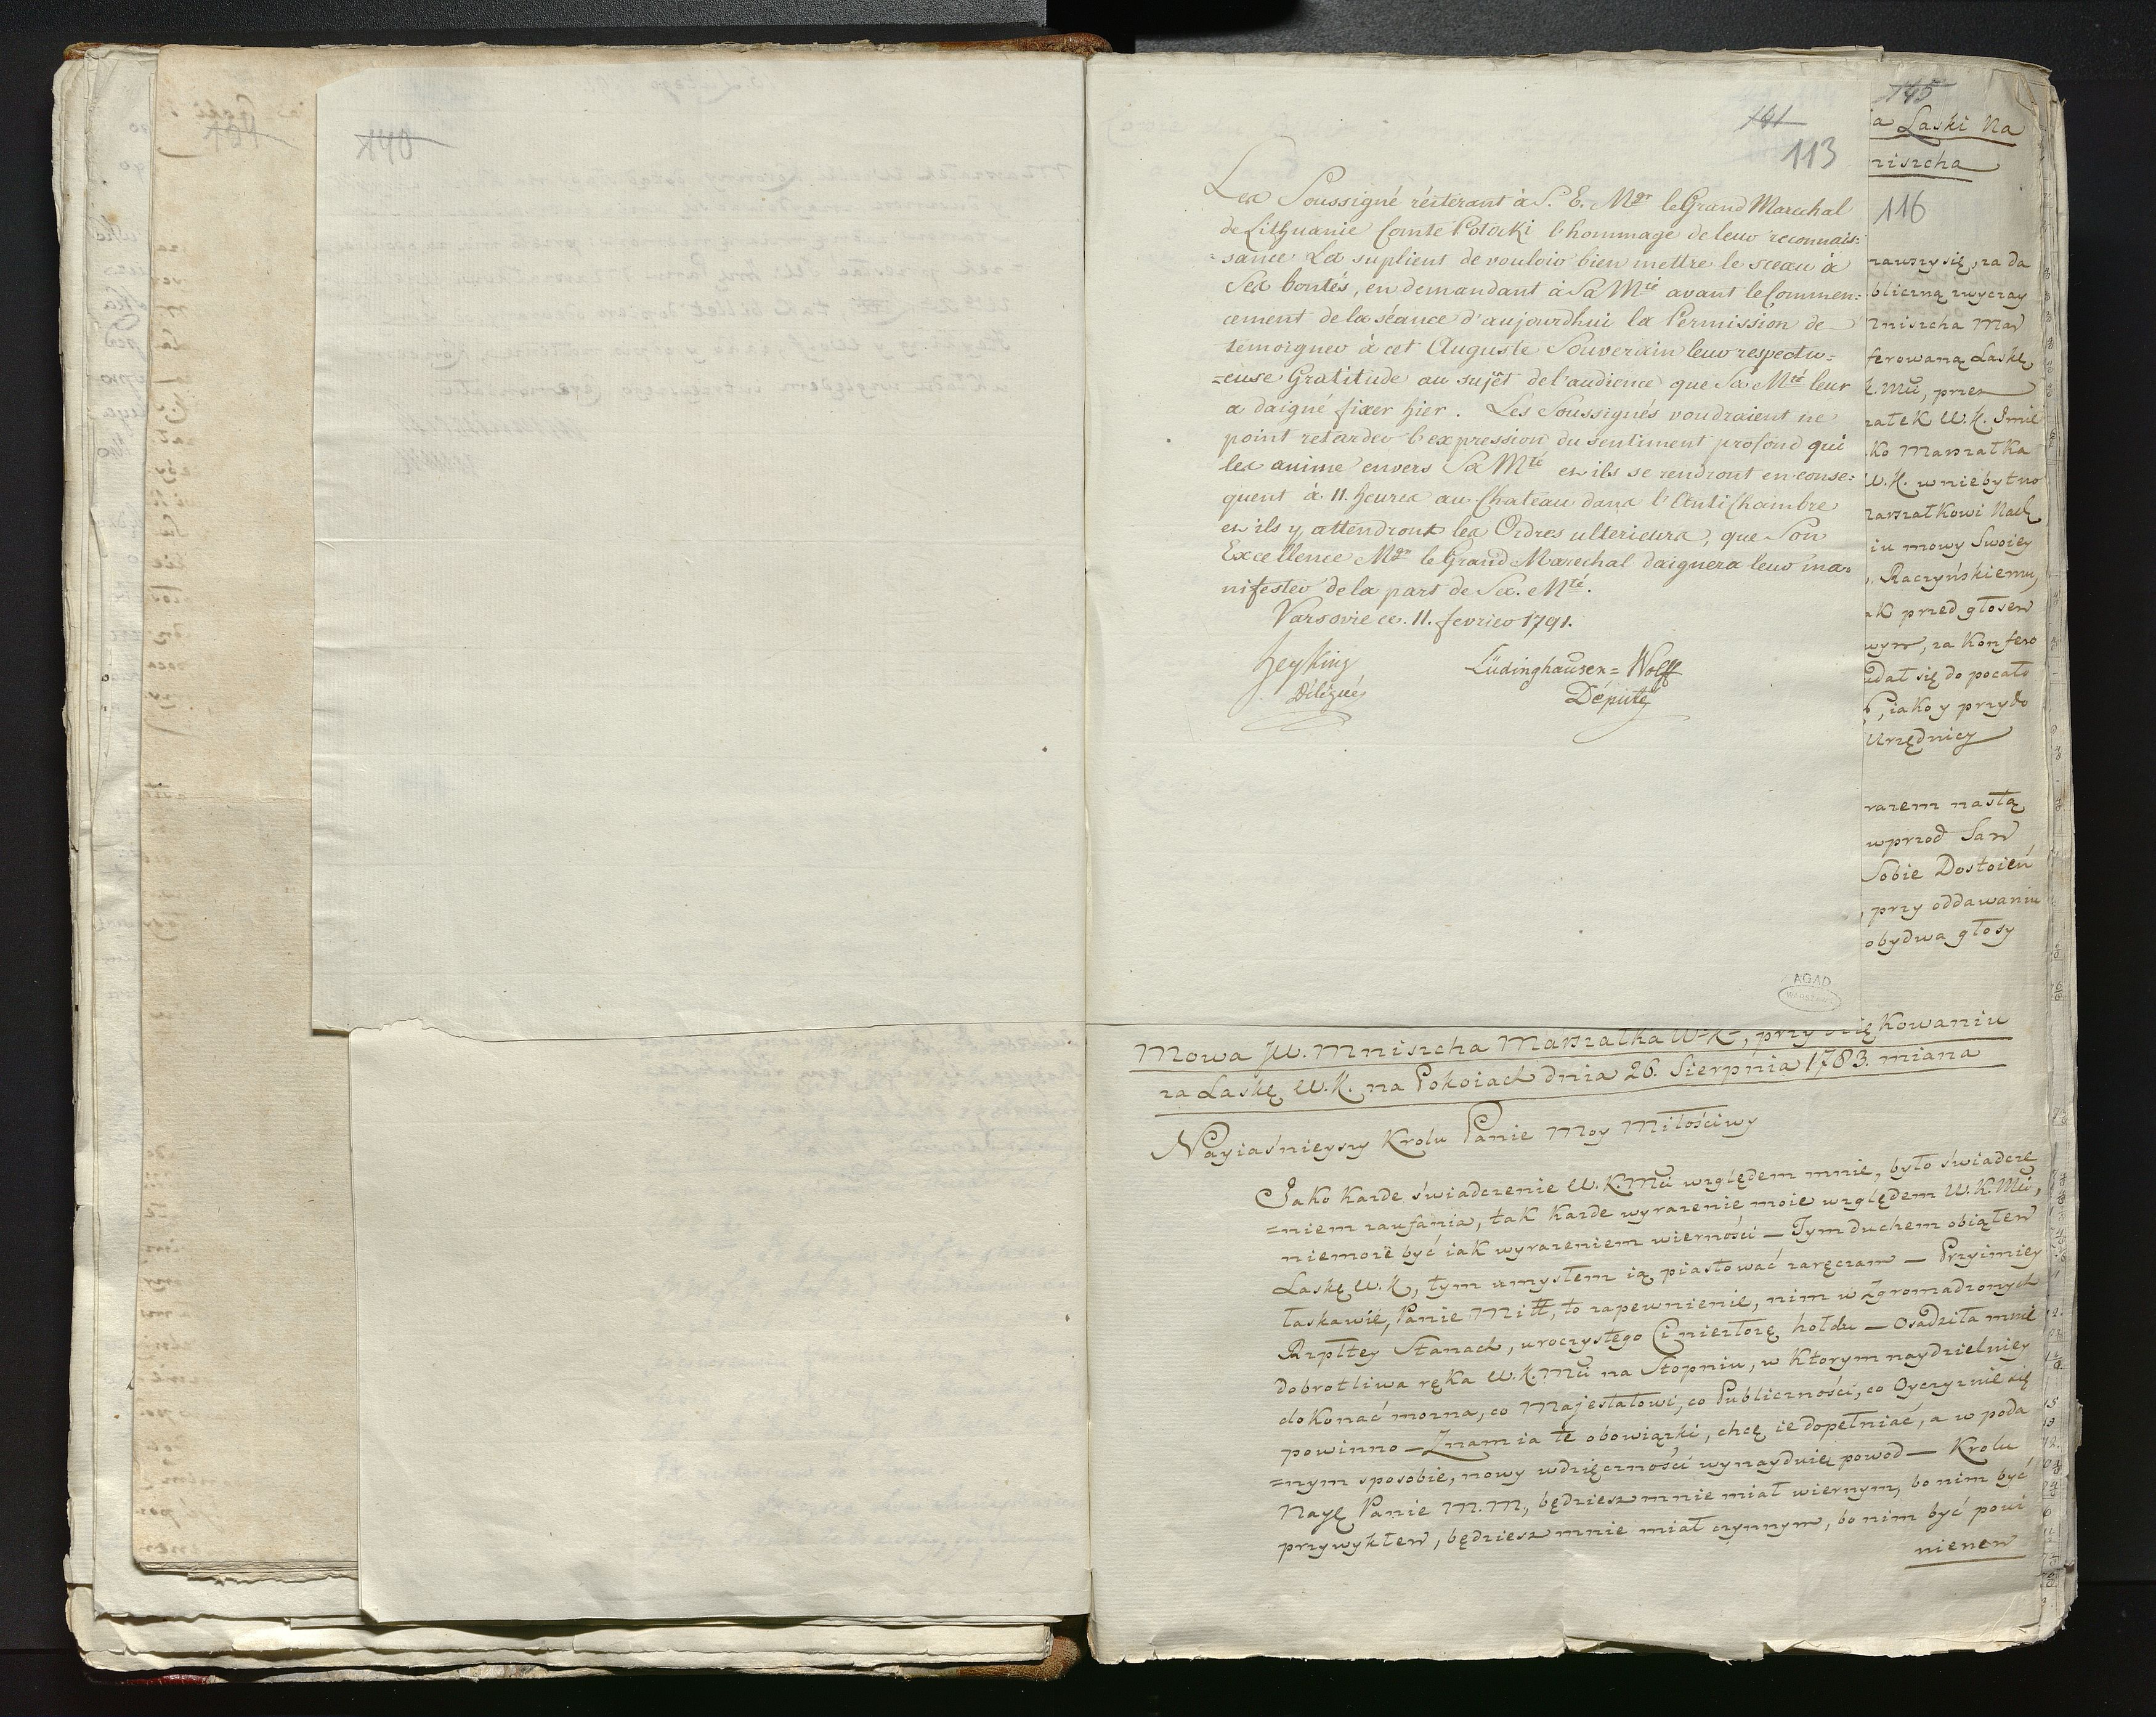 140
141
113
Les Soussigné réiterant à S. E. Mgr le Grand Marechal
de Lithuanie Comte Potocki l'hommage de leur reconnais:
:sance Les suplient de vouloir bien mettre le sceau à
Ses bontés, en demandant à Sa Mté avant le Commen:
cement de la séance d'aujourdhui la Permission de
témoigner à cet Auguste Souverain leur respectu=
=euse Gratitude au sujêt de l'audience que Sa Mté leur
a daigné fixer hier. Les Soussignés voudraient ne
point retarder l'expression du sentiment profond qui
les anime envers Sa Mté et ils se rendront en conse:
quent à 11. heures au Chateau dans l'Anti Chambre
et ils y attendront les Ordres ulterieurs, que Son
Excellence Mgr le Grand Marechal daignera leur ma:
nifester de la part de Sa. Mté.
Varsovie ce. 11. fevrier 1791.
Heyking
Délégué
Lüdinghausen = Wolff
Député
AGAD
WARSZAWA
145
a Laski Na
niszcha
116
rauszy się, za da
bliczną zwyczay
Mniszcha Mar
ferowaną Laskę
K. Mci, przez
załek W. K. Jmie
ko Marszałka
W. K. w niebytno
Marszałkowi Nad
iu mowy Swoiey
Raczyńskiemu,
ak przed głosem
wym, za Konfero
udał się do pocało
P, iako y przydo
Urzędnicy
razem nastą
wprzod Sam
Sobie Dostoień
, przy oddawaniu
obydwa głosy
Mowa JW. Mniszcha Marszałka W. K., przy dziękowaniu
za Laskę W. K. na Pokoiach dnia 26. Sierpnia 1783. miana
Nayiaśnieyszy Krolu Panie Moy Miłościwy
Jako każde świadczenie W. K. Mci względem mnie, było świadcze
=niem zaufania, tak każde wyrażenie moie względem W. K. Mci,
niemoże być iak wyrażeniem wierności — Tym duchem obiąłem
Laskę W. K, tym umysłem ią piastować zaręczam — Przyimiey
łaskawie, Panie Miłł, to zapewnienie, nim w Zgromadzonych
Rzpłtey Stanach, uroczystego Ci niezłożę hołdu — Osadziła mnie
dobrotliwa ręka W. K. Mci na Stopniu, w ktorym naydzielniey
dokonać można, co Majestatowi, co Publiczności, co Oyczyznie się
powinno — Znam ia te obowiązki, chcę ie dopełniać, a w poda
=nym sposobie, nowy wdzięczności wynayduię powod — Krolu
Nayę Panie M. M., będziesz mnie miał wiernym, bo nim być
przywykłem, będziesz mnie miał czynnym, bo nim być powi
nienem